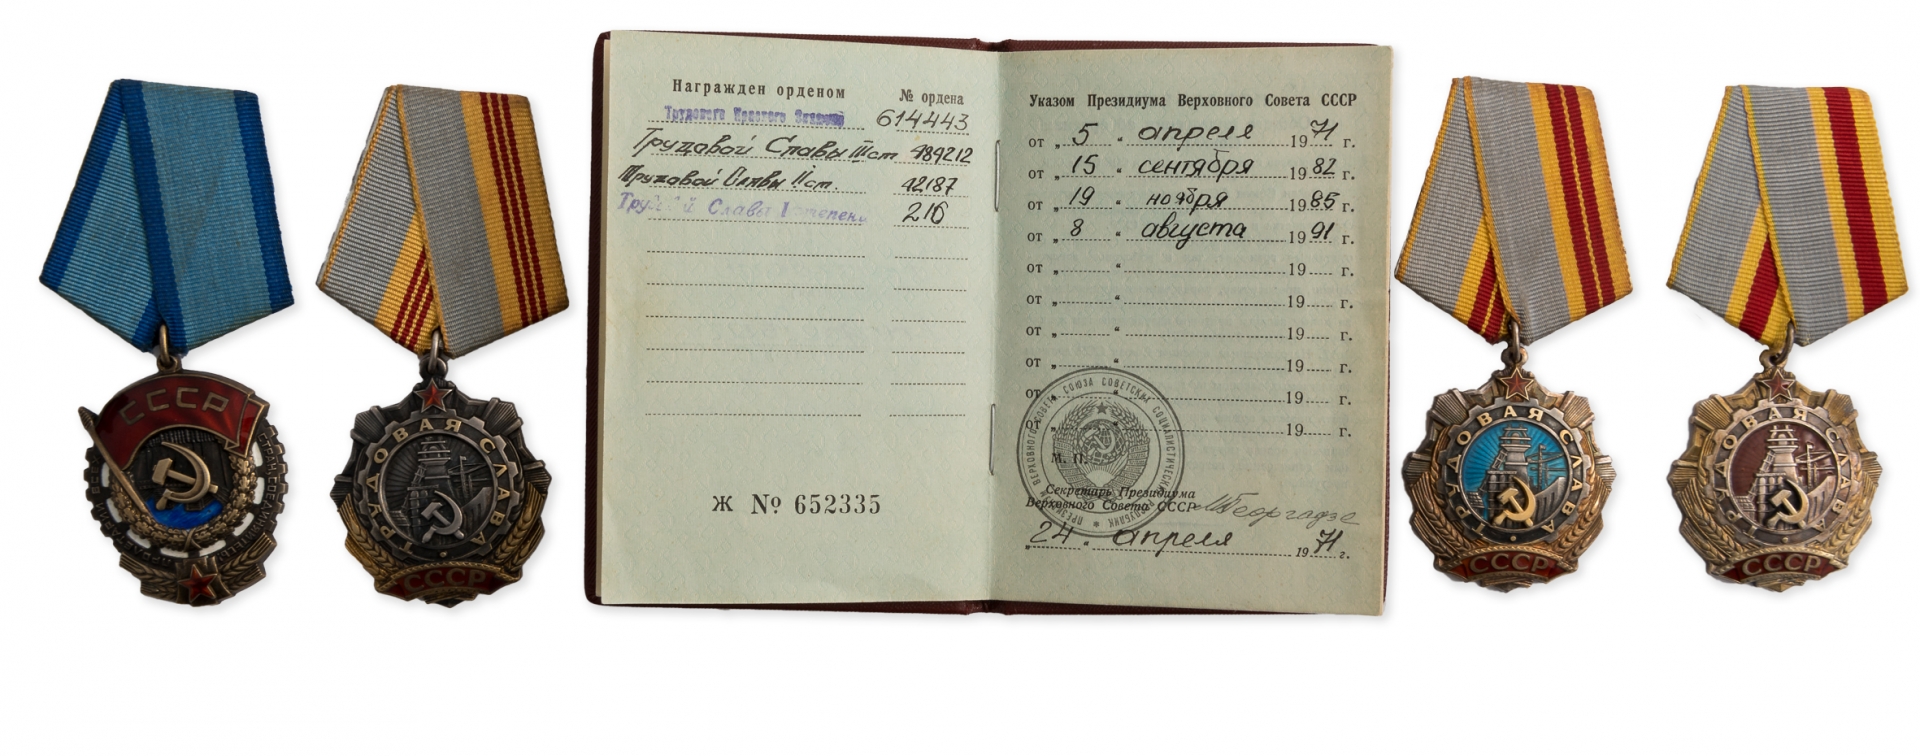 СССР
ТРУДОВАЯ СЛАВА
СССР
Награжден орденом
№ ордена
Трудового Красного Знамени 614443
Трудавой Славы III ст 484212
Трудовой Славы II ст. 42187
Трудовой Славы I степени 216
Ж № 652335
Указом Президиума Верховного Совета СССР
от „ 5 “ апреля 1971 г.
от „ 15 “ сентября 1982 г.
от „ 19 “ ноября 1985 г.
от „ 8 “ августа 1991 г.
от „ “ 19 г.
от „ “ 19 г.
от „ “ 19 г.
от „ “ 19 г.
от „ “ 19 г.
от „ “ 19 г.
М. П.
Секретарь Президиума
Верховного Совета СССР
„24“ апреля 1971 г.
ТРУДОВАЯ СЛАВА
СССР
ТРУДОВАЯ СЛАВА
СССР